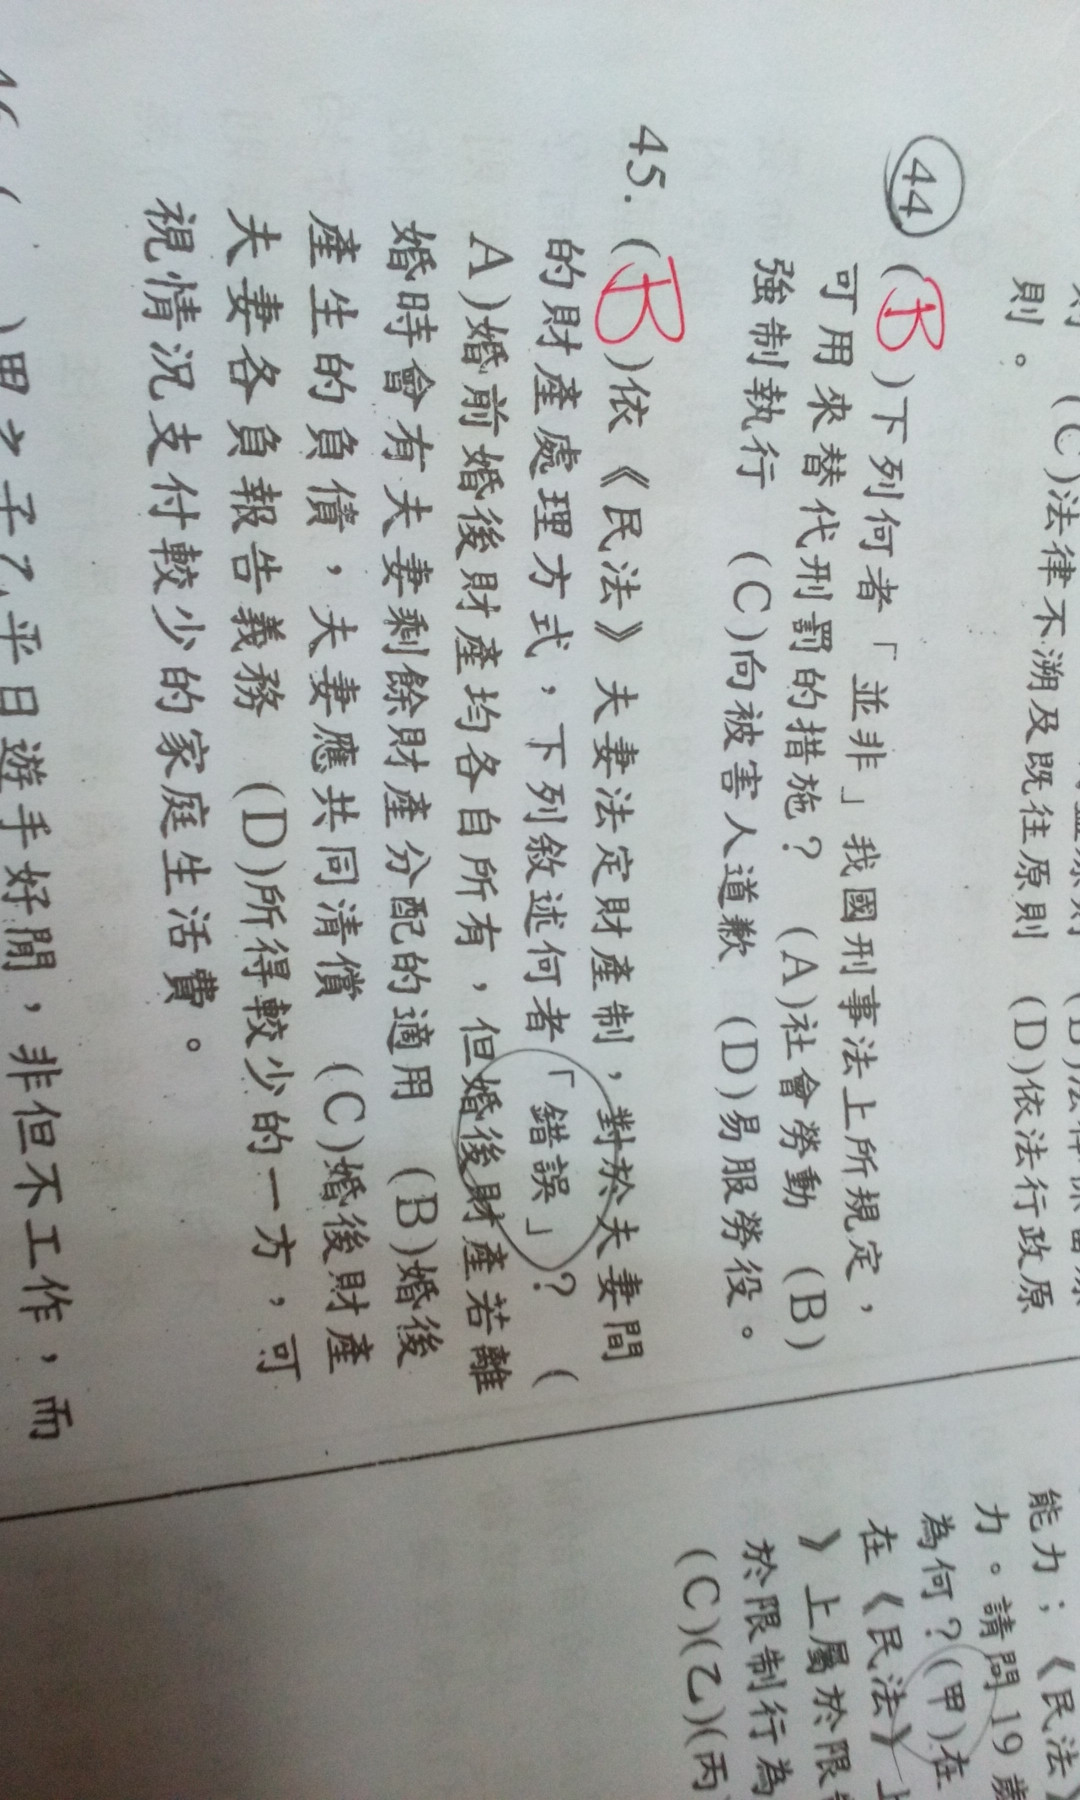 則。
(C)法律不溯及既往原則 (D)依法行政原
44 (B)下列何者「並非」我國刑事法上所規定，
可用來替代刑罰的措施？ (A)社會勞動 (B)
強制執行 (C)向被害人道歉 (D)易服勞役。
45. (B)依《民法》夫妻法定財產制，對於夫妻間
的財產處理方式，下列敘述何者「錯誤」？ (
A)婚前婚後財產均各自所有，但婚後財產若離
婚時會有夫妻剩餘財產分配的適用 (B)婚後
產生的負債，夫妻應共同清償 (C)婚後財產
夫妻各負報告義務 (D)所得較少的一方，可
視情況支付較少的家庭生活費。
46 ( )甲之子乙平日遊手好閒，非但不工作，而
能力；《民法》
力。請問19歲
為何？(甲)在
在《民法》上
》上屬於限制
於限制行為
(C)(乙)(丙